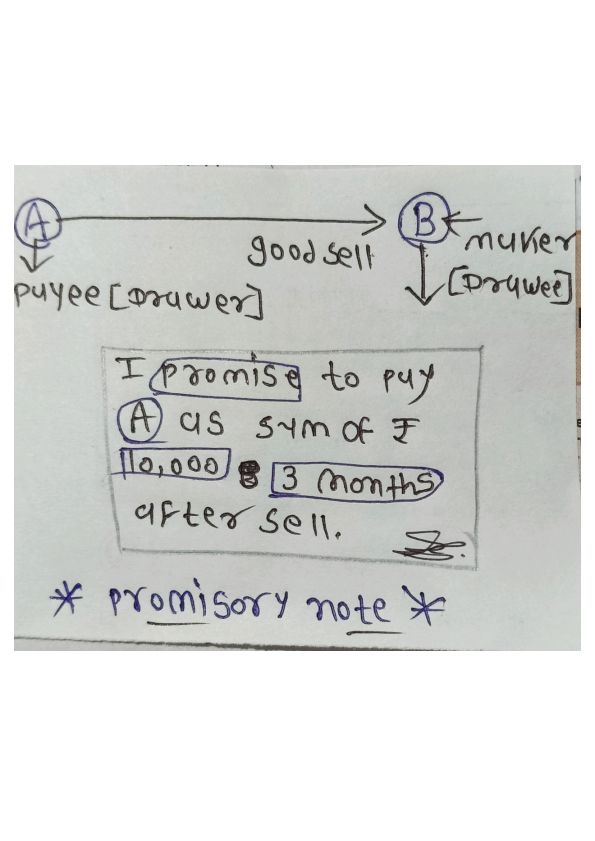 A good sell B maker
payee [Drawer] [Drawee]
I promise to pay
A as sum of ₹
10,000 3 months
after sell.
* promisory note *